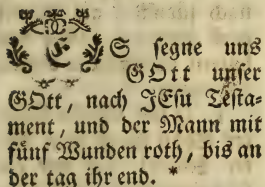 ES segne uns
GOtt unser
GOtt, nach JEsu Testa-
ment, und der Mann mit
fünf Wunden roth, bis an
der tag ihr end. *